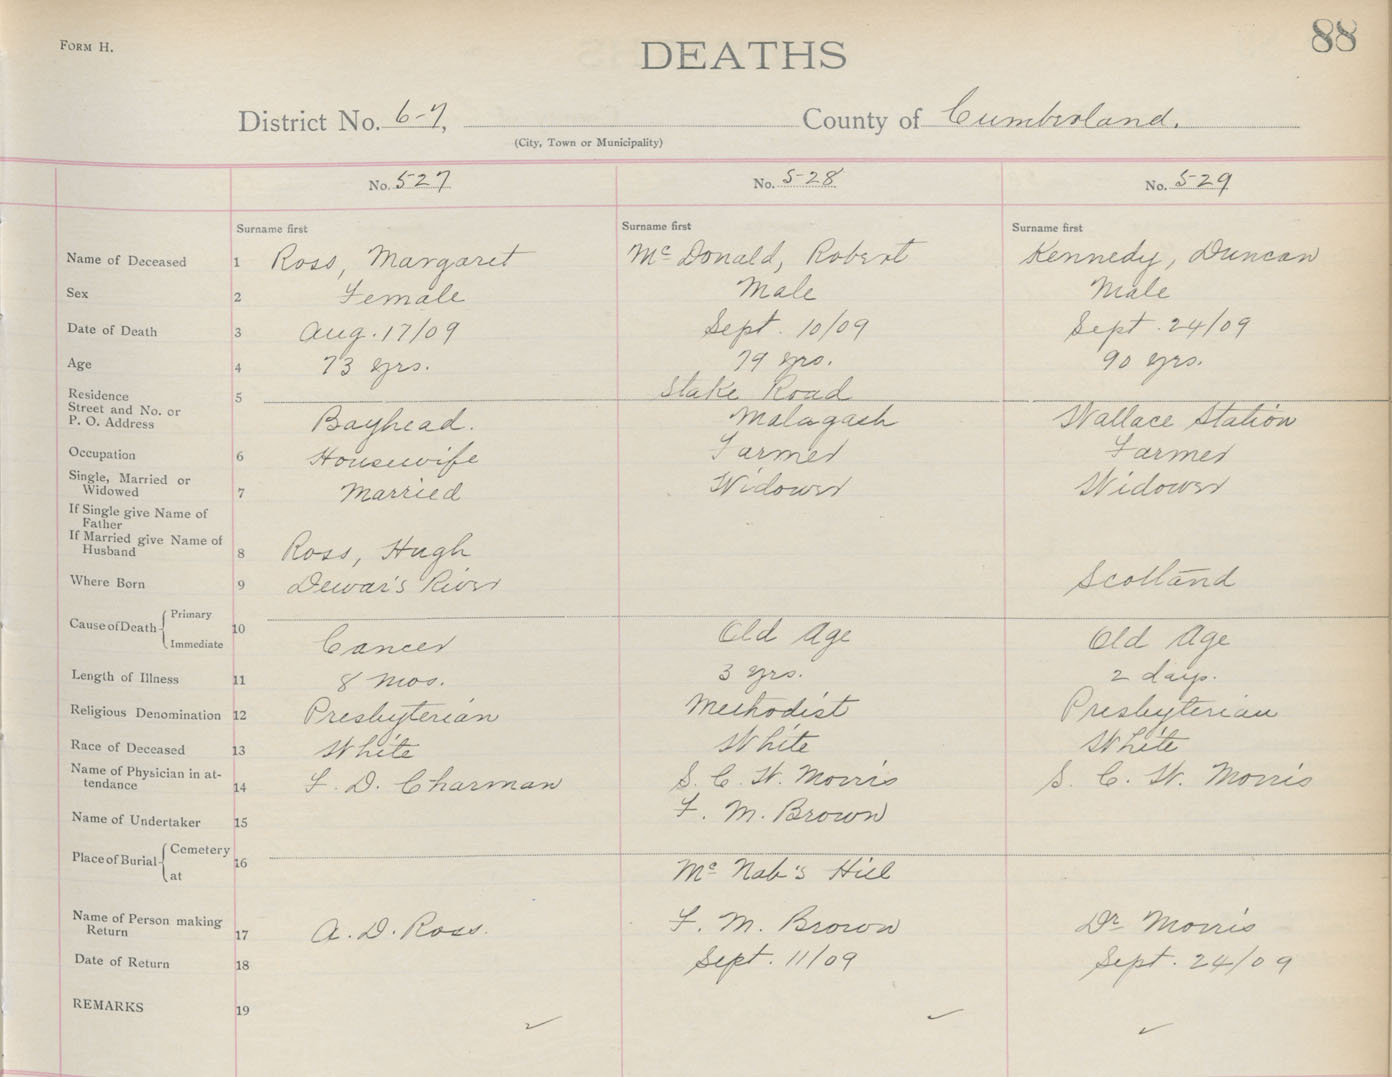 FORM H.
88
DEATHS
District No. 6-7, County of Cumberland.
(City, Town or Municipality)
No. 527 No. 528 No. 529
Surname first Surname first Surname first
Name of Deceased 1 Ross, Margaret McDonald, Robert Kennedy, Duncan
Sex 2 Female Male Male
Date of Death 3 Aug. 17/09 Sept. 10/09 Sept. 24/09
Age 4 73 yrs. 79 yrs. 90 yrs.
Residence 5 Stake Road
Street and No. or
P. O. Address Bayhead. Malagash Wallace Station
Occupation 6 Housewife Farmer Farmer
Single, Married or
Widowed 7 Married Widower Widower
If Single give Name of
Father
If Married give Name of
Husband 8 Ross, Hugh
Where Born 9 Dewar's River Scotland
Cause of Death Primary 10 Old Age Old Age
Immediate Cancer
Length of Illness 11 8 mos. 3 yrs. 2 days.
Religious Denomination 12 Presbyterian Methodist Presbyterian
Race of Deceased 13 White White White
Name of Physician in at-
tendance 14 F. D. Charman S. C. W. Morris S. C. W. Morris
Name of Undertaker 15 F. M. Brown
Place of Burial Cemetery 16
at McNab's Hill
Name of Person making
Return 17 A. D. Ross. F. M. Brown Dr Morris
Date of Return 18 Sept. 11/09 Sept. 24/09
REMARKS 19
✓ ✓ ✓